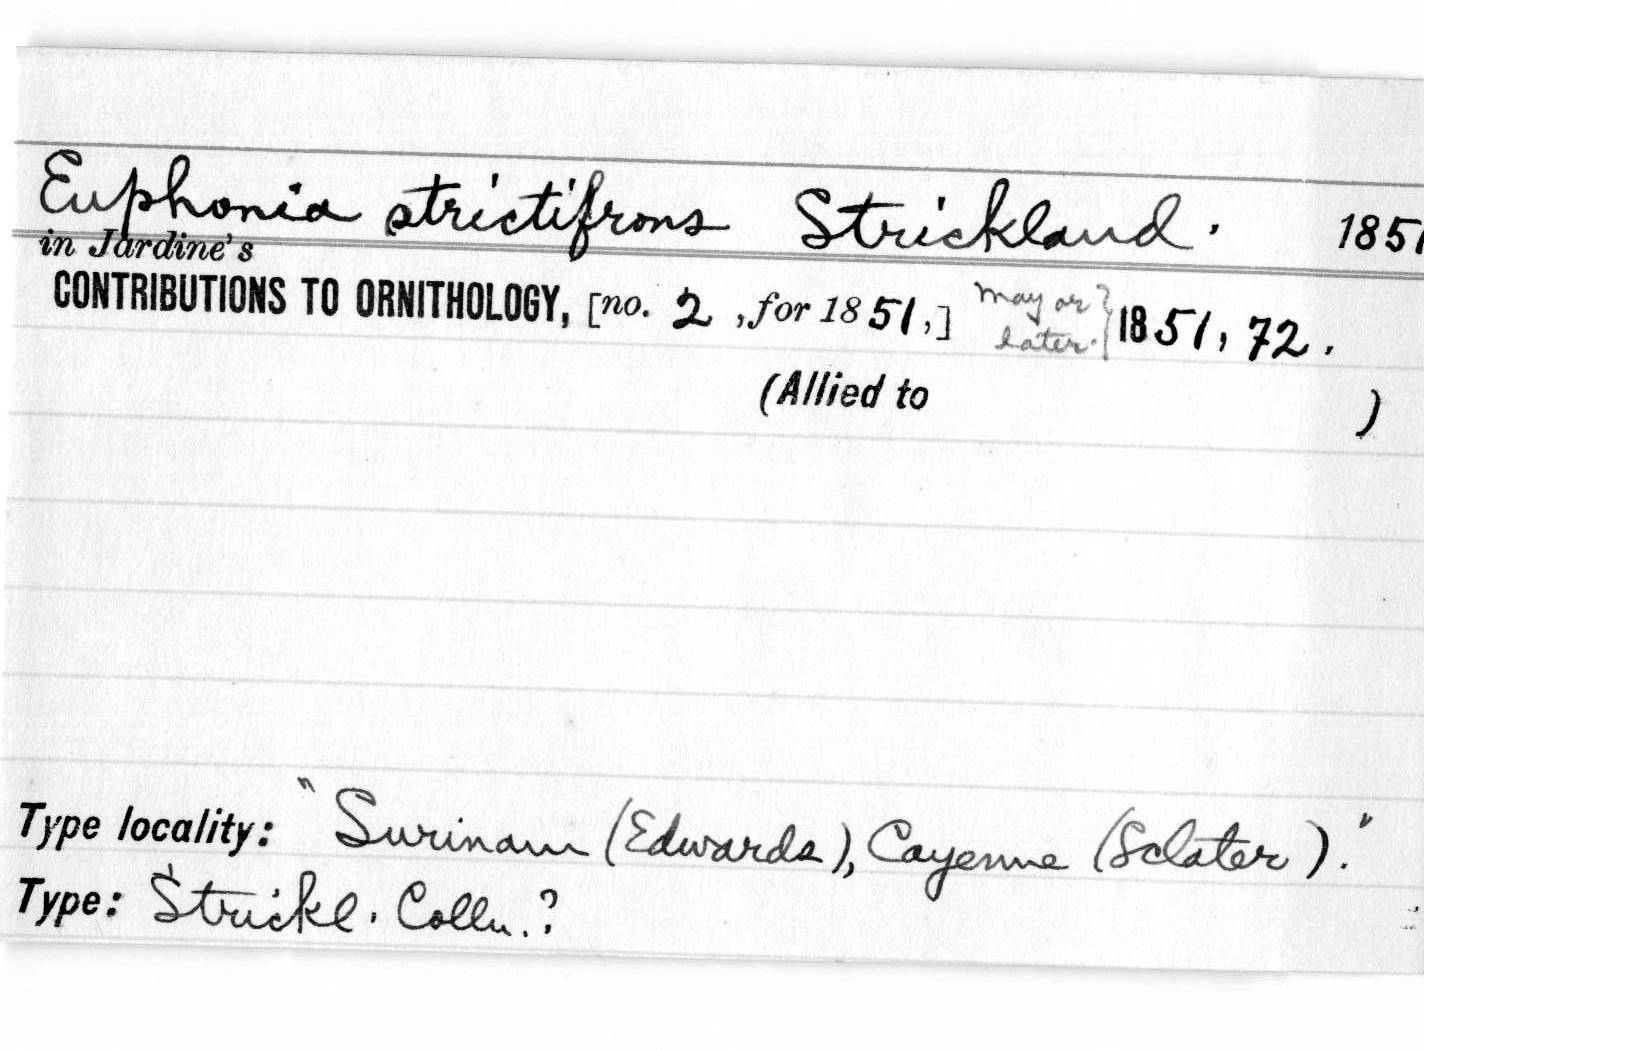 Euphonia strictifrons Strickland. 1851
in Jardine's
CONTRIBUTIONS TO ORNITHOLOGY, [no. 2, for 1851,] May or later. 1851, 72.
(Allied to )
Type locality: "Surinam (Edwards), Cayenne (Sclater)."
Type: Strickl. Colln.?